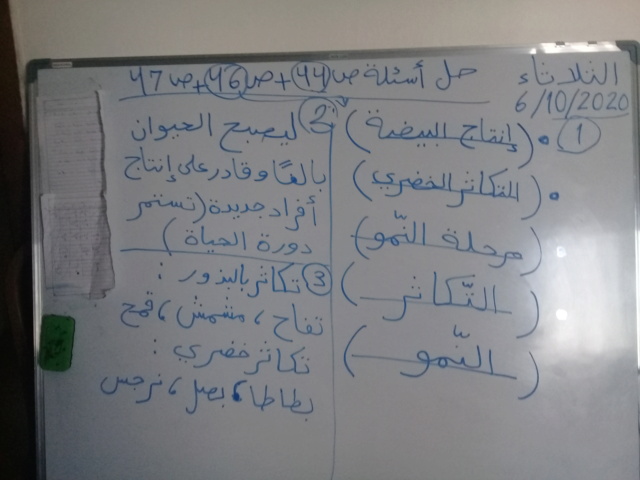 الثلاثاء
6/10/2020
حل أسئلة ص 44 + ص 46 + ص 47
1 • (إنتاج البيضة)
• (التكاثر الخضري)
(مرحلة النّمو)
(التّكاثر)
(النّمو)
2 ليصبح الحيوان
بالغًا وقادر على إنتاج
أفراد جديدة (تستمر
دورة الحياة)
3 تكاثر بالبذور :
تفاح ، مشمش ، قمح
تكاثر خضري :
بطاطا ، بصل ، نرجس